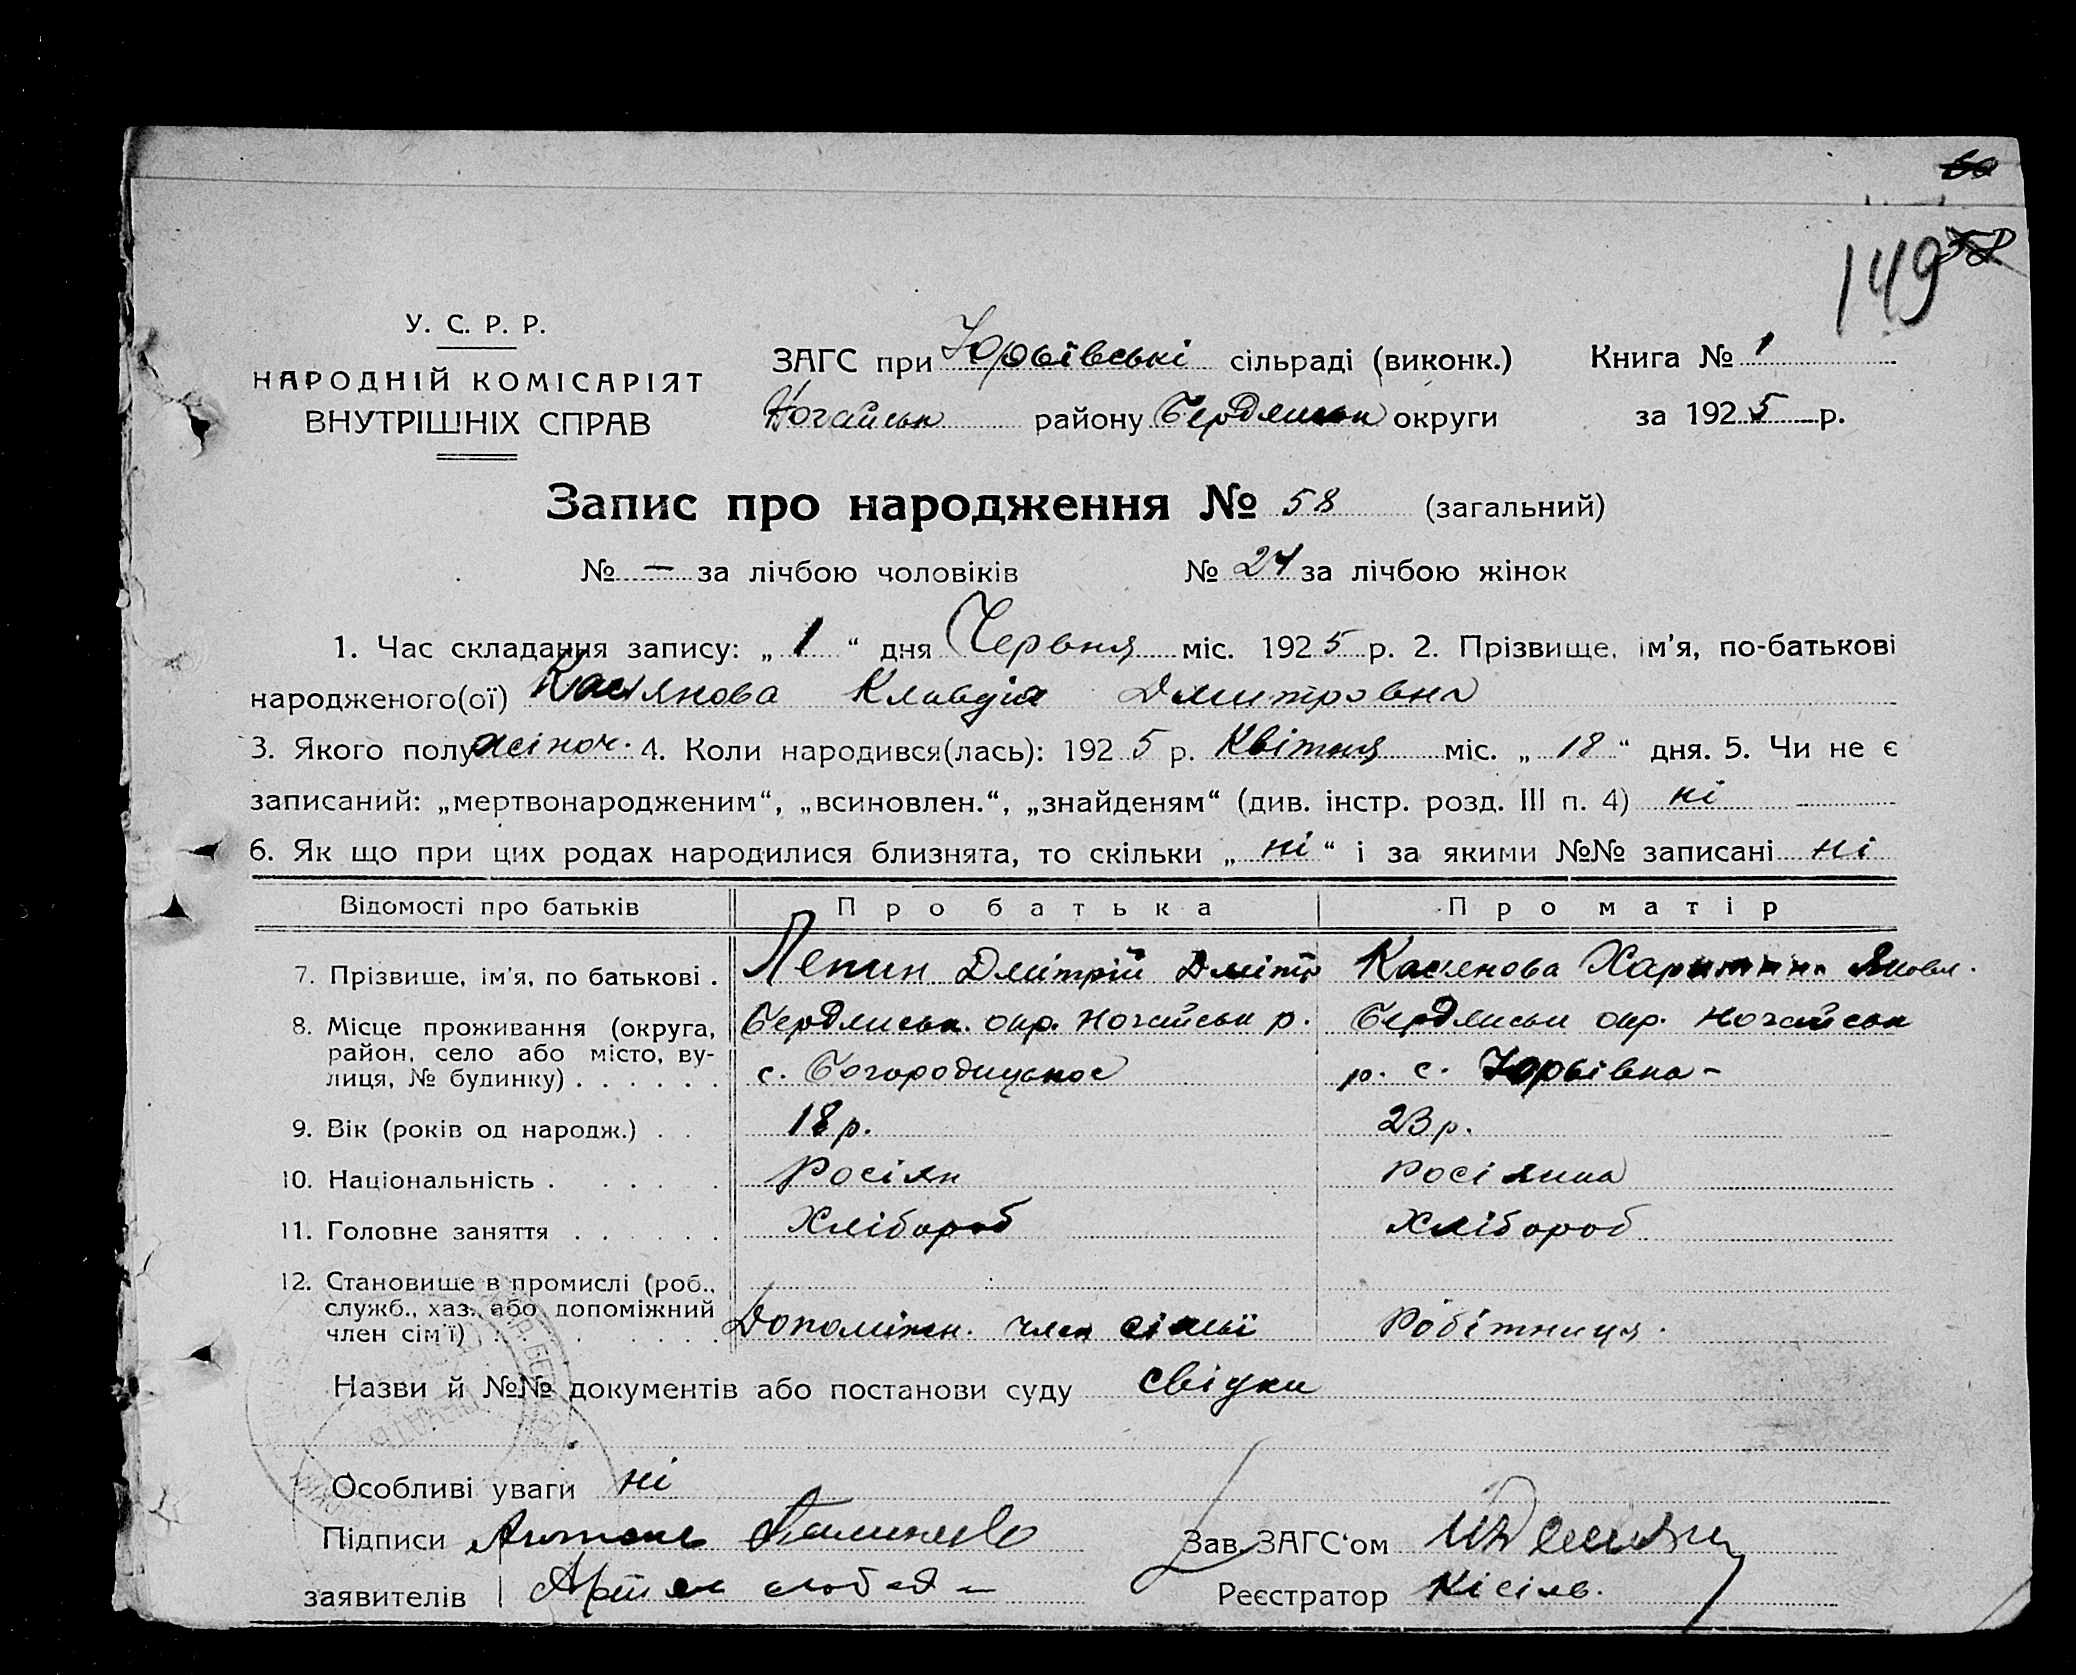 149
У. С. Р. Р.
НАРОДНІЙ КОМІСАРІЯТ
ВНУТРІШНІХ СПРАВ
ЗАГС при Юрьївські сільраді (виконк.) Книга № 1
Ногайськ району Бердянськ округи за 1925 р.
Запис про народження № 58 (загальний)
№ — за лічбою чоловіків № 24 за лічбою жінок
1. Час складання запису: „ 1 “ дня Червня міс. 1925 р. 2. Прізвище, ім'я, по-батькові
народженого(ої) Касянова Клавдія Дмитровна
3. Якого полу жіноч. 4. Коли народився(лась): 1925 р. Квітня міс. „ 18 “ дня. 5. Чи не є
записаний: „мертвонародженим“, „всиновлен.“, „знайденям“ (див. інстр. розд. III п. 4) ні
6. Як що при цих родах народилися близнята, то скільки „ ні “ і за якими №№ записані ні
Відомості про батьків Про батька Про матір
7. Прізвище, ім'я, по батькові . Лепин Дмітрій Дмітр Касянова Яковл.
8. Місце проживання (округа, Бердянськ. окр. Ногайськ р. Бердянськ окр. Ногайськ
район, село або місто, ву-
лиця, № будинку) . . . . . . с. Богородицькое р. с. Юрьївка -
9. Вік (років од народж.) . . 18 р. 23 р.
10. Національність . . . . . Росіян росіянка
11. Головне заняття . . . . . . Хлібороб Хлібороб
12. Становище в промислі (роб.,
служб., хаз., або допоміжний
член сім'ї) . . . . . . Допоміжн. член сімьї Робітниця.
Назви й №№ документів або постанови суду свідки
Особливі уваги ні
Підписи Антон Зав. ЗАГС'ом
заявителів Реєстратор Кісіль.